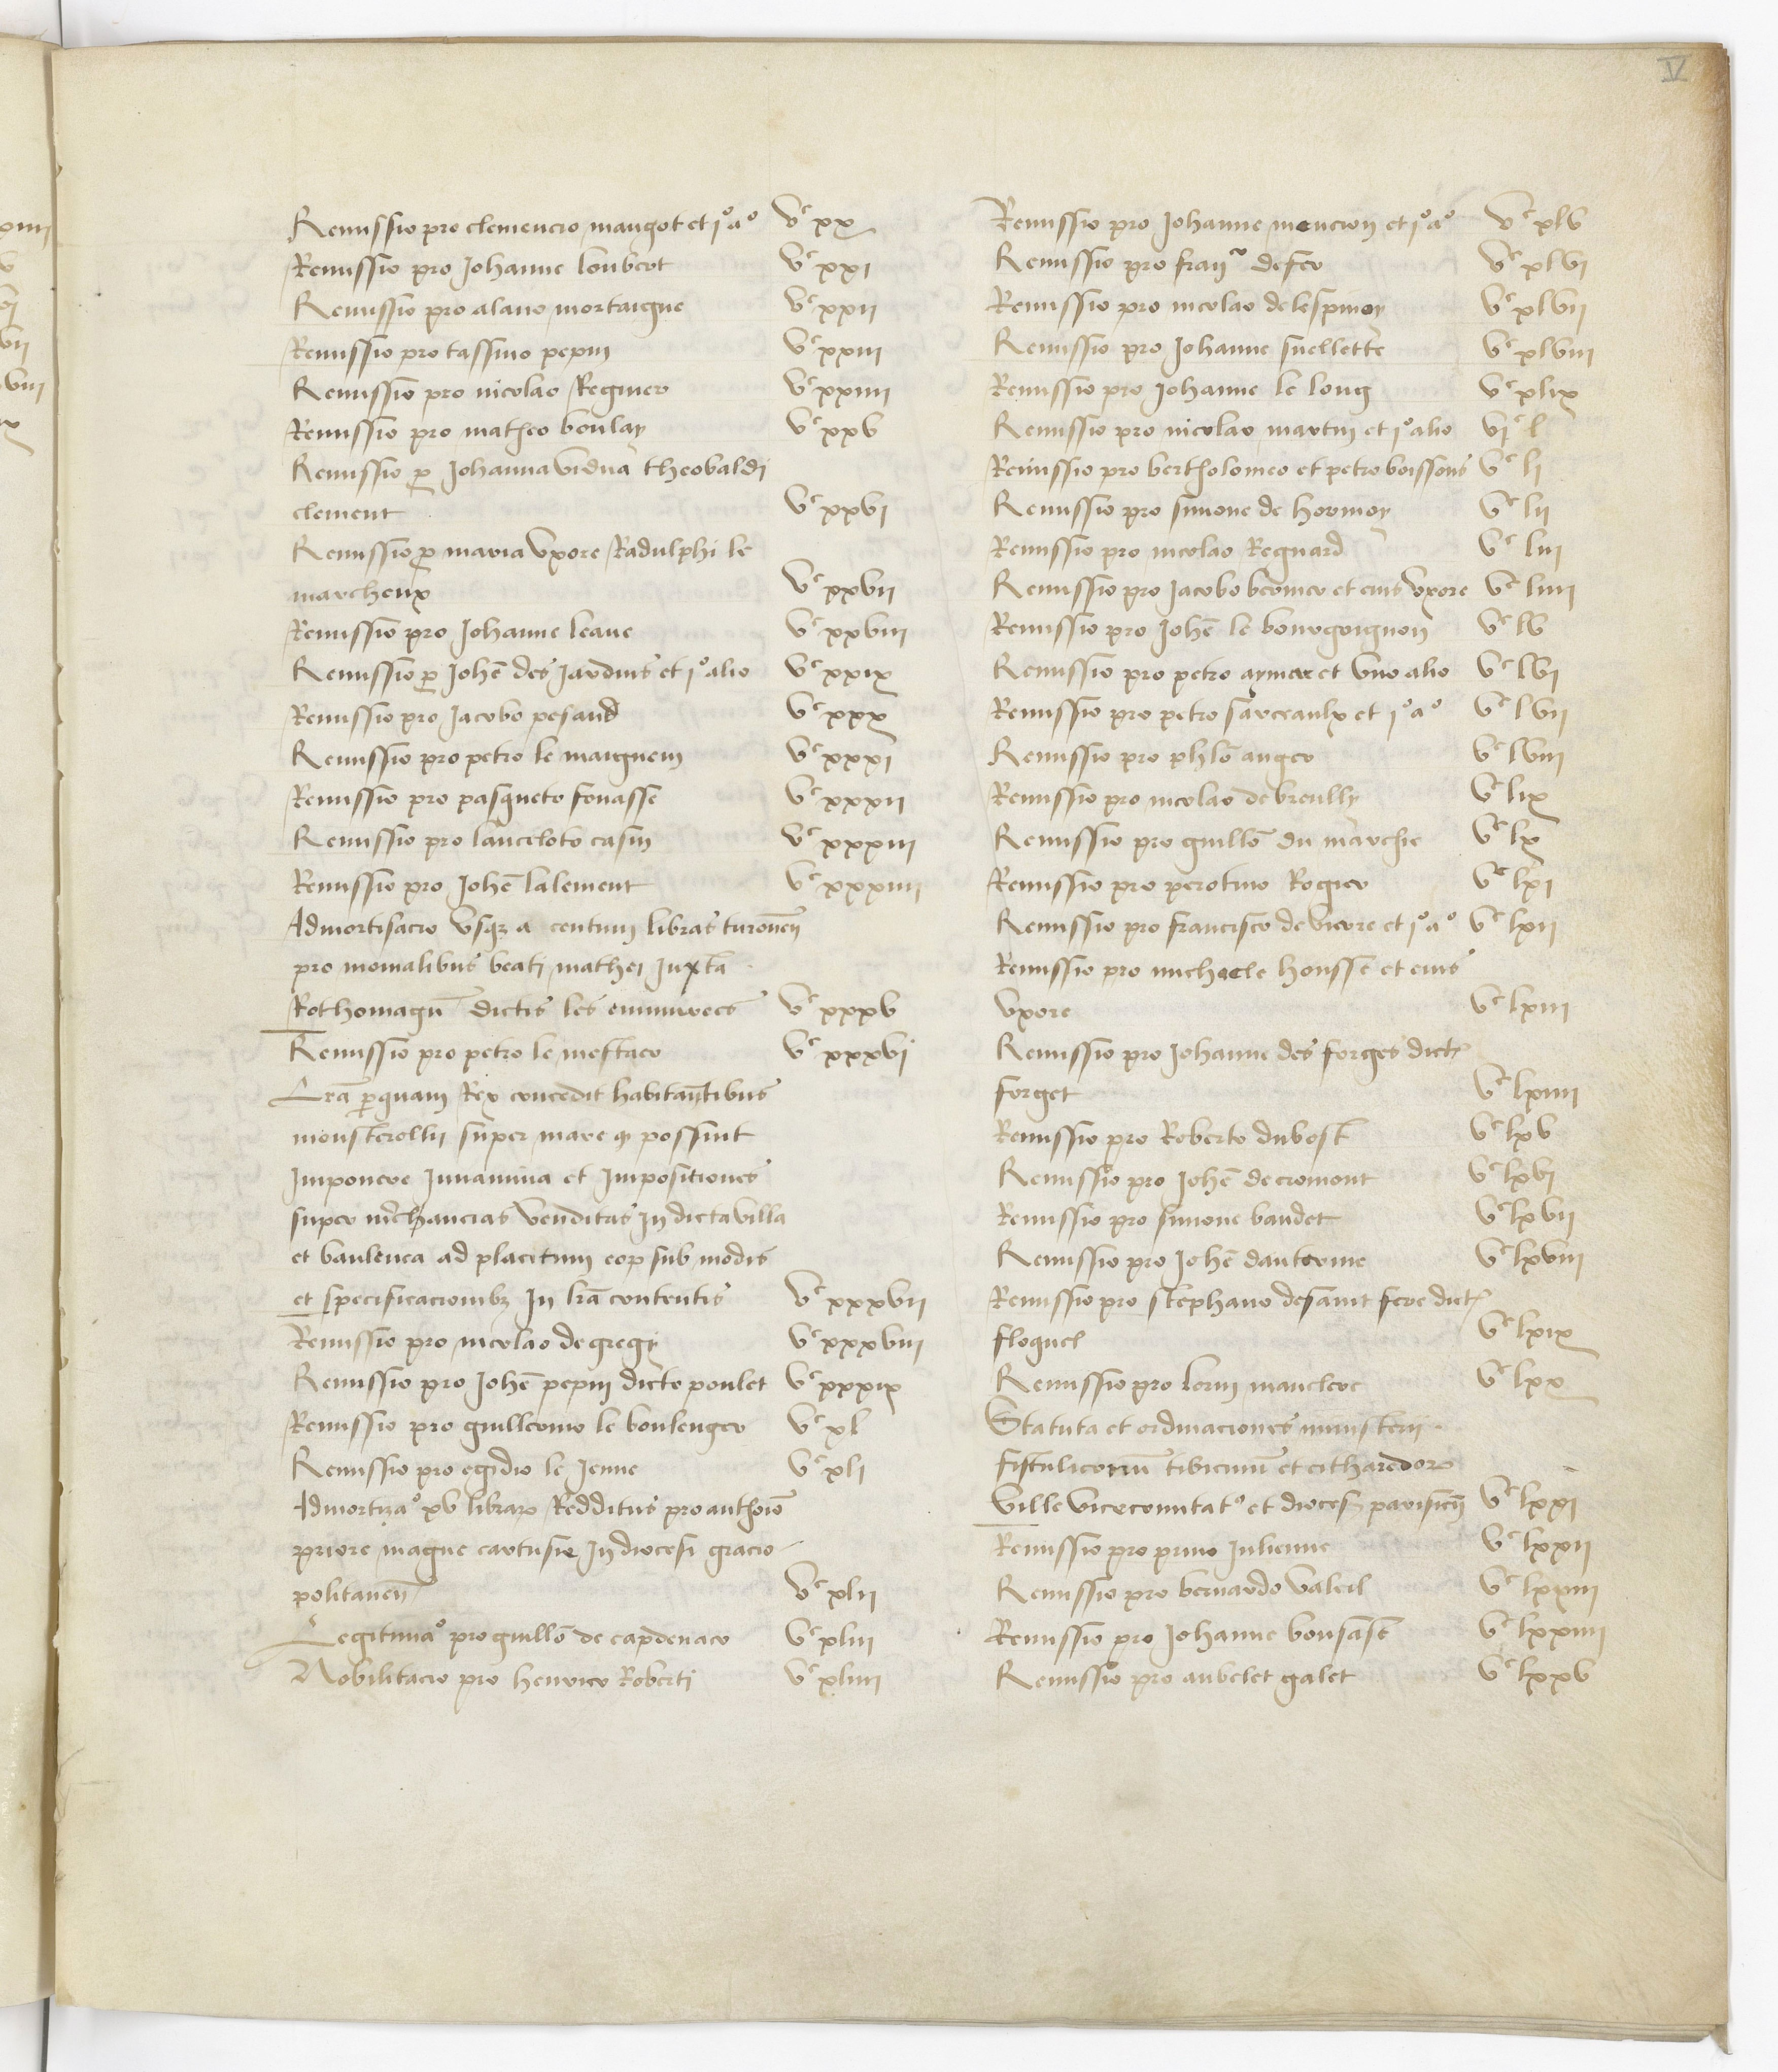 V
Remissio pro clemencio maugot et i° a° Vc xx
Remissio pro Johanne loubert Vc xxi
Remissio pro alano mortaigne Vc xxii
Remissio pro tassino pepin Vc xxiii
Remissio pro nicolao Regnier Vc xxiiii
Remissio pro matheo boulay Vc xxv
Remissio p Johanna vidua theobaldi
clement Vc xxvi
Remissio p maria uxore Radulphi le
marcheux Vc xxvii
Remissio pro Johanne leave Vc xxviii
Remissio p Johe des Jardins et i° alio Vc xxix
Remissio pro Jacobo pesand Vc xxx
Remissio pro petro le maignen Vc xxxi
Remissio pro pasqueto fouasse Vc xxxii
Remissio pro lanceloto casin Vc xxxiii
Remissio pro Johe lalement Vc xxxiiii
Admortisacio usqz a centum libras turonen
pro monialibus beati mathei juxta
Rothomagu dictis les emmurees Vc xxxv
Remissio pro petro le mestaer Vc xxxvi
Lra p quam Rex concedit habitantibus
monsterollii super mare q possint
Imponere Juvamina et Impositiones
super mchancias venditas in dicta villa
et banleuca ad placitum eor sub modis
et specificacionibz In lra contentis Vc xxxvii
Remissio pro nicolao de gregy Vc xxxviii
Remissio pro Johe pepin dicto poulet Vc xxxix
Remissio pro guillermo le boulenger Vc xl
Remissio pro egidio le Jeune Vc xli
Admortiza° xv librar Redditus pro anthoio
priore magne cartusie In diocesi gracio
politanen Vc xlii
Legitima° pro guillo de capdenaco Vc xliii
Nobilitacio pro henrico Roberti Vc xliiii
Remissio pro Johanne mencion et i° a° Vc xlv
Remissio pro fran defer Vc xlvi
Remissio pro nicolao de lespinoy Vc xlvii
Remissio pro Johanne suellette Vc xlviii
Remissio pro Johanne le long Vc xlix
Remissio pro nicolao martin et i° alio Vc l
Remissio pro bertholomeo et petro boissons Vc li
Remissio pro simone de hormoy Vc lii
Remissio pro nicolao Regnard Vc liii
Remissio pro Jacobo bernier et eius uxore Vc liiii
Remissio pro Johe le bourgoignon Vc lv
Remissio pro petro aymer et uno alio Vc lvi
Remissio pro petro sarceaulx et i° a° Vc lvii
Remissio pro phlo auger Vc lviii
Remissio pro nicolao de breully Vc lix
Remissio pro guillo du marche Vc lx
Remissio pro perotino Rogier Vc lxi
Remissio pro francisco de vicore et i° a° Vc lxii
Remissio pro michaele housse et eius
uxore Vc lxiii
Remissio pro Johanne des forges dict
forget Vc lxiiii
Remissio pro Roberto dubost Vc lxv
Remissio pro Johe de cromont Vc lxvi
Remissio pro simone baudet Vc lxvii
Remissio pro Johe danterine Vc lxviii
Remissio pro stephano de saint fere dict
floquel Vc lxix
Remissio pro lorin maucleve Vc lxx
Statuta et ordinaciones ministerii
fistulicornu tibicinu et citharedor
Ville vicecomitat° et dioces parisien Vc lxxi
Remissio pro primo Julienne Vc lxxii
Remissio pro bernardo valeil Vc lxxiii
Remissio pro Johanne bonsast Vc lxxiiii
Remissio pro aubelet galet Vc lxxv